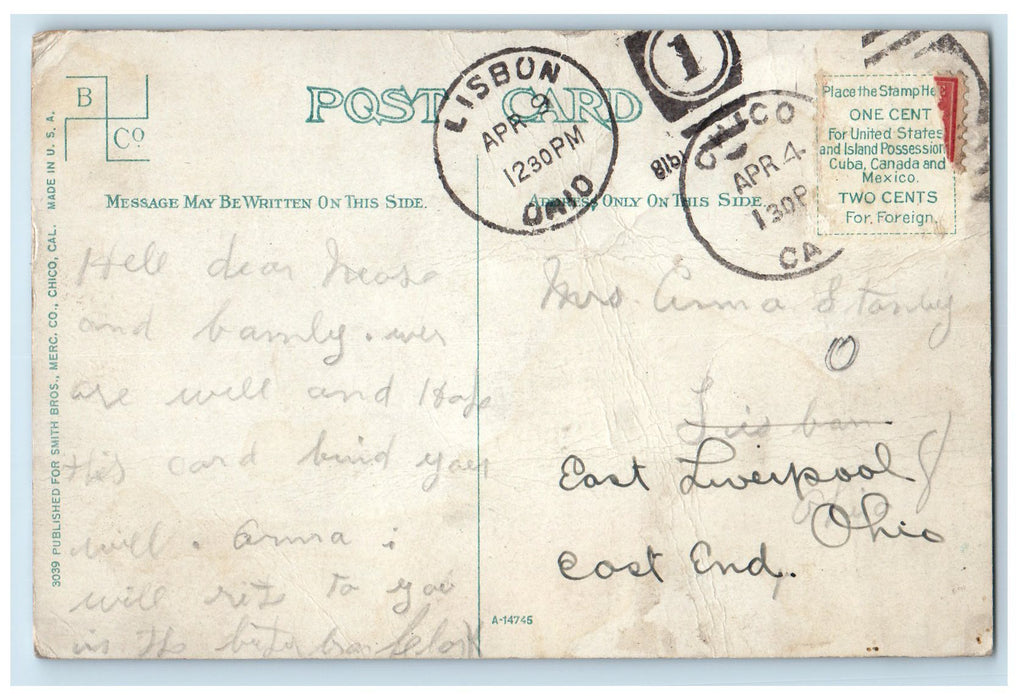 B
Co
POST CARD
LISBON
APR 9
1230PM
OHIO
1
1918
CHICO
APR 4
130P
CA
Place the Stamp He
ONE CENT
For United States
and Island Possession
Cuba, Canada and
Mexico.
TWO CENTS
For Foreign.
MESSAGE MAY BE WRITTEN ON THIS SIDE.
ADDRESS ONLY ON THIS SIDE.
3039 PUBLISHED FOR SMITH BROS., MERC. CO., CHICO, CAL. MADE IN U. S. A.
Hell dear
and bamly. wer
are well and Hope
this card bind you
well. Anna :
will rite to you
in the
Mrs. Anna Stanby
O
Lisban
East Liverpool
Ohio
East End.
A-14745